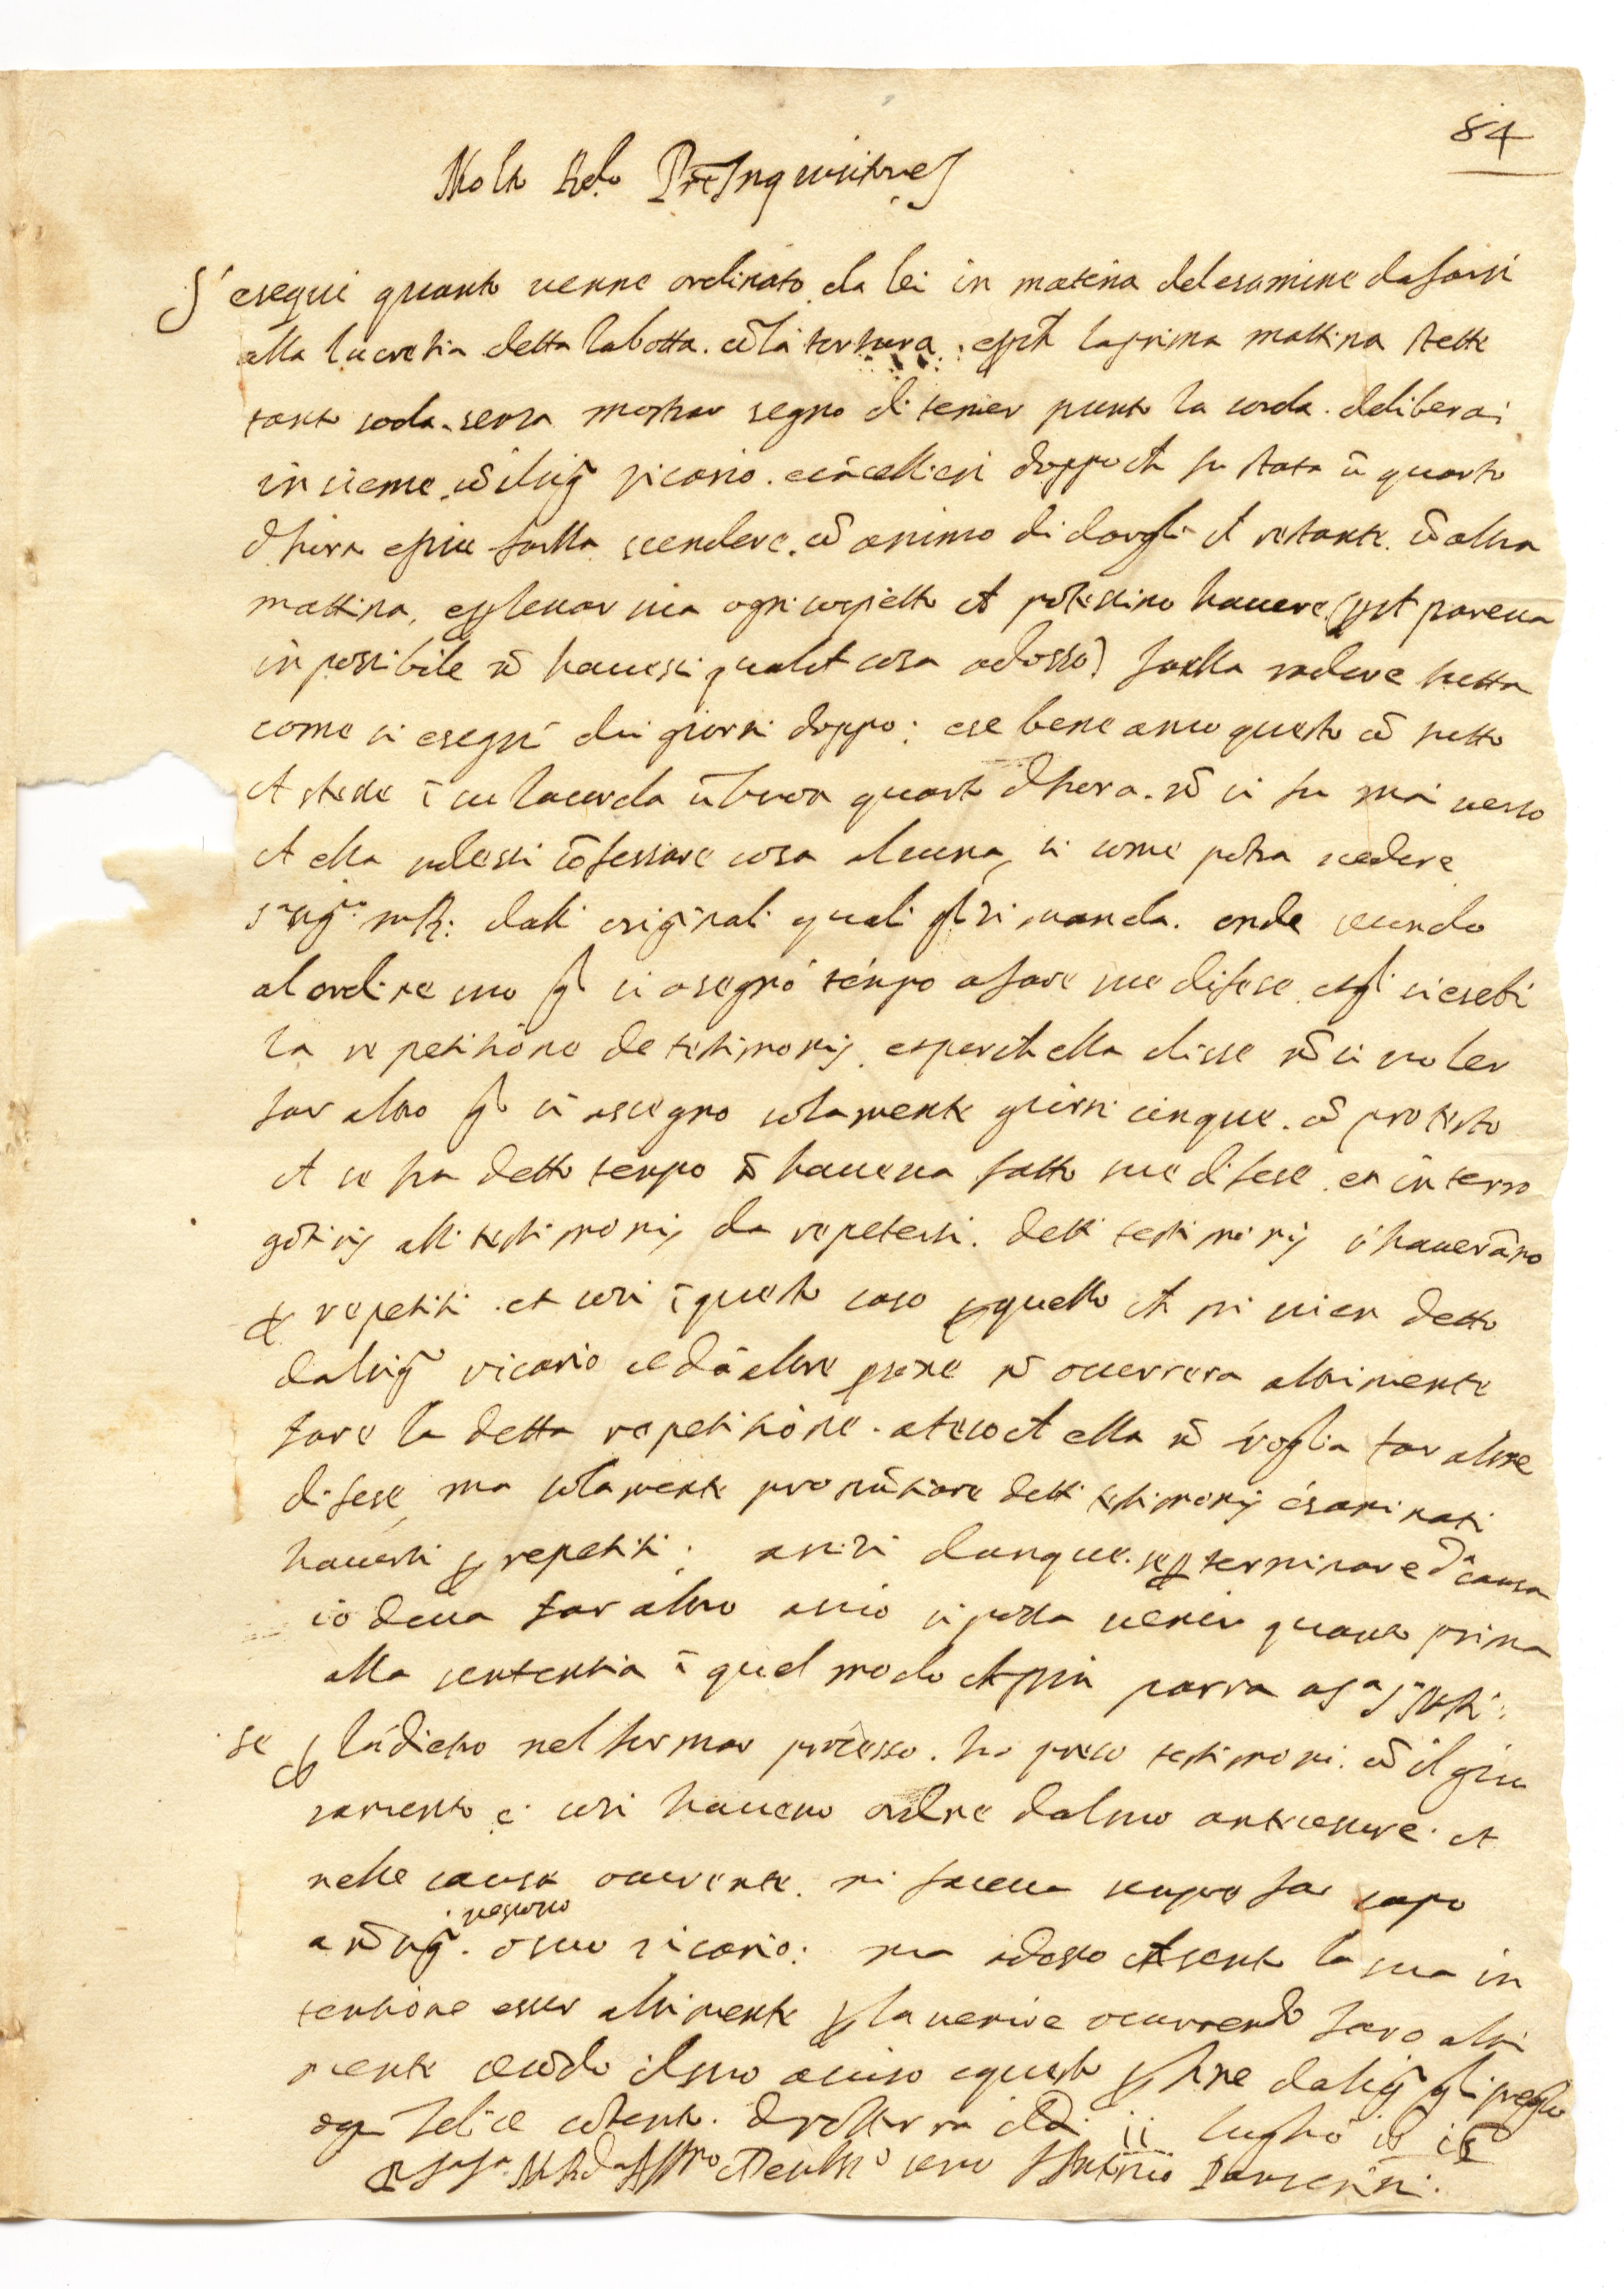 84
Molto Rdo Pre Inquisitre
S'esequi quanto venne ordinato da lei in materia del esamine da farsi
alla lucretia detta la botta. cō la tortura. e pch la prima mattina stette
tanto soda senza mostrar segno di temer punto la corda. deliberai
insieme cō il sigr vicario. e cācellieri doppo ch fu stata ū quarto
d'hora e piu farla scendere. cō animo di dargli il restante. ū altra
mattina, e p levar via ogni sospetto ch potessimo havere (pch pareva
inpossibile nō havessi qualch cosa adosso) farla radere tutta
come si esegui dui giorni doppo: e se bene anco questo cō tutto
ch stesse ī su la corda ū buon quarto d'hora. nō ci fu mai verso
ch ella volessi cōfessare cosa alcuna, si come potra vedere
dalli originali quali gli si manda. onde secondo
al ordine suo gli si asegno tēnpo a fare sue difese e gli si esebi
la repetitione de testimonij. e perch ella disse nō ci voler
far altro gli si assegno solamente giorni cinque. cō protesto
ch se fra detto tenpo nō haveva fatto sue difese et interro
gatorij alli testimonij da repetersi. detti testimonij s'haverāno
p repetiti. et cosi ī questo caso p quello ch mi vien detto
dal sigr vicario e da altre psone nō occorrera altrimente
fare la detta repetitione. ateso ch ella nō voglia far altre
difese, ma solamente pronūtiare detti testimonij esaminati
haversi p repetiti: avisi dunque. se p terminare da causa
io deva far altro acio si possa venir quanto prima
alla sententia ī quel modo ch piu parra a
se p la dietro nel formar processo. ho preso testimoni. cō il giu
ramento e cosi havevo ordine dal suo antecessore. ch
nelle cause ocurrente. mi faceva sempre far capo
a nō sigr. vescovo o suo vicario: ma adesso ch sento la sua in
tentione esser altrimente p la venire ocurrendo faro altri
mente secōdo il suo aviso e questo p fine dal sigr gli prego
ogni felice cōtento. di volterra il di ii luglio
servo Antonio